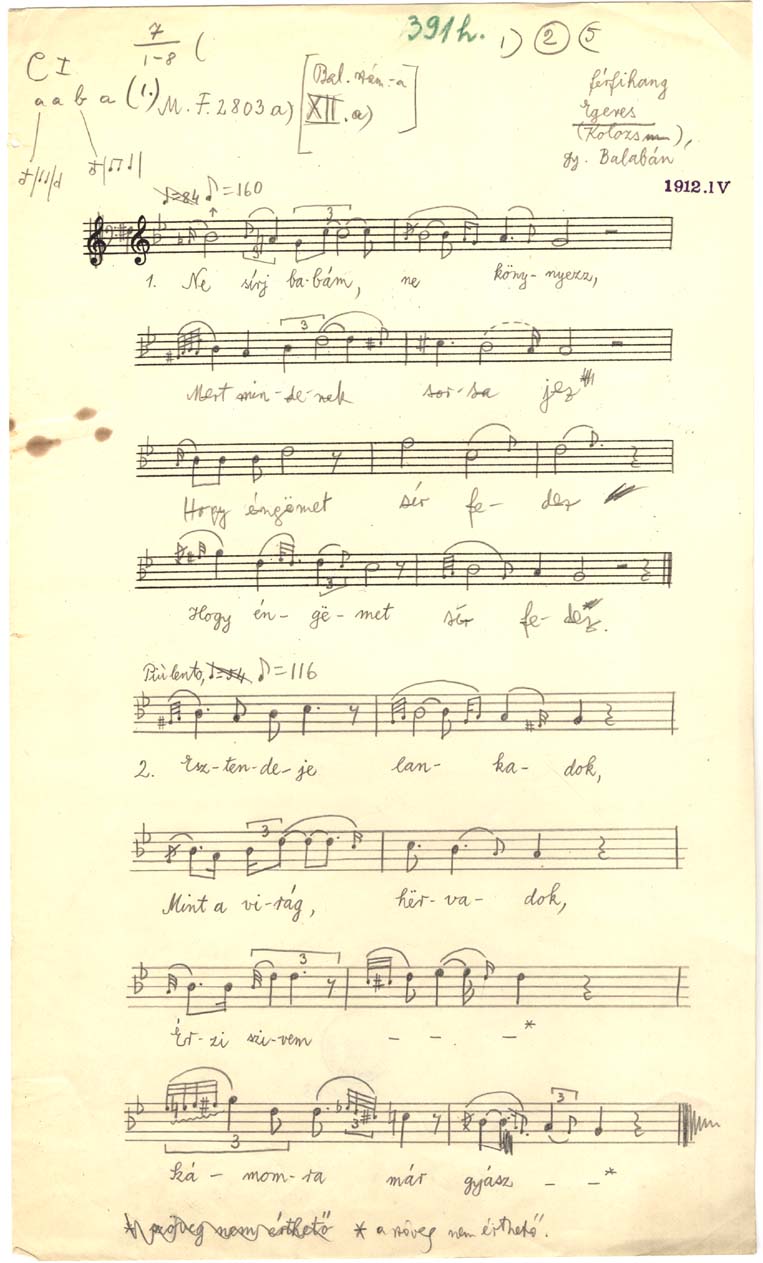 7 391 h. 1) 2 5
1-8 (
C I [Bal. szám.-a férfihang
a a b a (1.) M. F. 2803 a) XII. a)] Egeres
(Kolozs),
gy. Balabán
1912.IV
♪=84 ♪=160
3
1. Ne sírj ba-bám, ne köny-nyezz,
3
Mert min-de-nek sor-sa jez
Hogy éngömet sír fe- dez
3
Hogy én- gë- met sír fe- dez.
Più lento, ♩=54 ♪=116
2. Esz-ten-de-je lan- ka- dok,
3
Mint a vi-rág, hër-va- dok,
3
Ér-zi szi-vem – – – *
3 3 3
ká- mom-ra már gyász – – *
* szöveg nem érthető * a szöveg nem érthető.